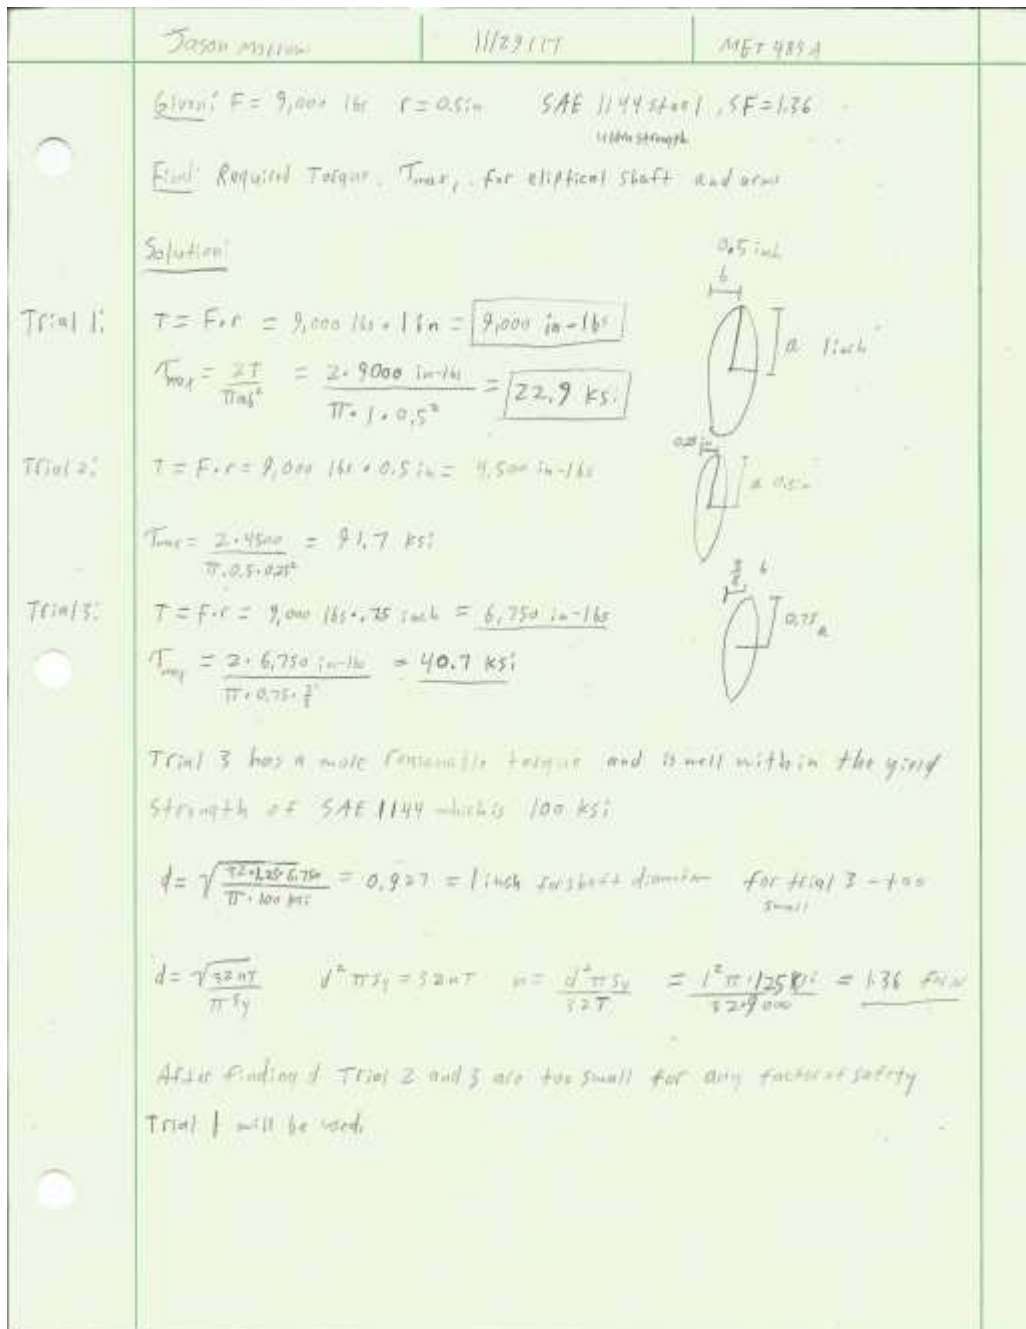 Jason Morrow 11/29/17 MET 489A
Given: F = 9,000 lbs r = 0.5in SAE 1144 steel, SF = 1.36
ultra strength
Find: Required Torque, Tmax, for eliptical shaft and arms
Solution:
0.5 inch
b
Trial 1: T = F·r = 9,000 lbs · 1 in = 9,000 in-lbs
a 1 inch
τmax = 2T/πab² = 2·9000 in-lbs/π·1·0.5² = 22.9 ksi
0.25 in
Trial 2: T = F·r = 9,000 lbs · 0.5 in = 4,500 in-lbs
a 0.5in
τmax = 2·4500/π·0.5·0.25² = 91.7 ksi
3/8 b
Trial 3: T = F·r = 9,000 lbs · .75 inch = 6,750 in-lbs
0.75 a
τmax = 2·6,750 in-lbs/π·0.75·3/8² = 40.7 ksi
Trial 3 has a more reasonable torque and is well within the yield
strength of SAE 1144 which is 100 ksi
d = √32·1.25·6,750/π·100 ksi = 0.927 = 1 inch for shaft diameter for trial 3 - too
small
d = √32nT/πSy d²πSy = 32nT n = d²πSy/32T = 1²π·125 ksi/32·9000 = 1.36
After finding d Trial 2 and 3 are too small for any factor of safety
Trial 1 will be used.